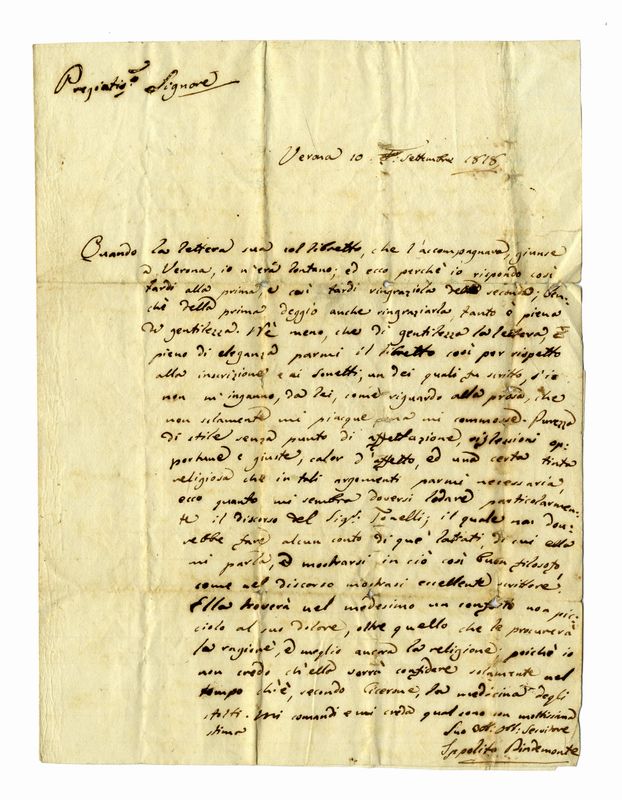 Pregiatis.º Signore
Verona 10 Settembre 1818
Quando la lettera sua col libretto, che l'accompagnava, giunse
a Verona, io n'era lontano; ed ecco perchè io rispondo così
tardi alla prima, e così tardi ringraziola della seconda; ben-
chè della prima deggio anche ringraziarla tanto è piena
di gentilezza. Nè meno, che di gentilezza la lettera, è
pieno di eleganza parmi il libretto così per rispetto
alla inscrizione e ai sonetti, un dei quali fu scritto, s'io
non m'inganno, da Lei, come riguardo alla prosa, che
non solamente mi piacque ma mi commosse. Purezza
di stile senza punto di affettazione, riflessioni op-
portune e giuste, calor d'affetto, ed una certa tinta
religiosa che in tali argomenti parmi necessaria,
ecco quanto mi sembra doversi lodare particolarmen-
te il discorso del Sig.r Tonelli; il quale non dov-
rebbe fare alcun conto di que' latrati di cui ella
mi parla, e mostrarsi in ciò così buon filosofo,
come nel discorso mostrasi eccellente scrittore.
Ella troverà nel medesimo un conforto non pic-
ciolo al suo dolore, oltre quello che le procurerà
la ragione, e meglio ancora la religione; poichè io
non credo ch'ella vorrà confidare solamente nel
tempo ch'è, secondo Cicerone, la medicina degli
stolti. Mi comandi e mi creda qual sono con moltissima
stima
Suo Servitore
Ippolito Pindemonte